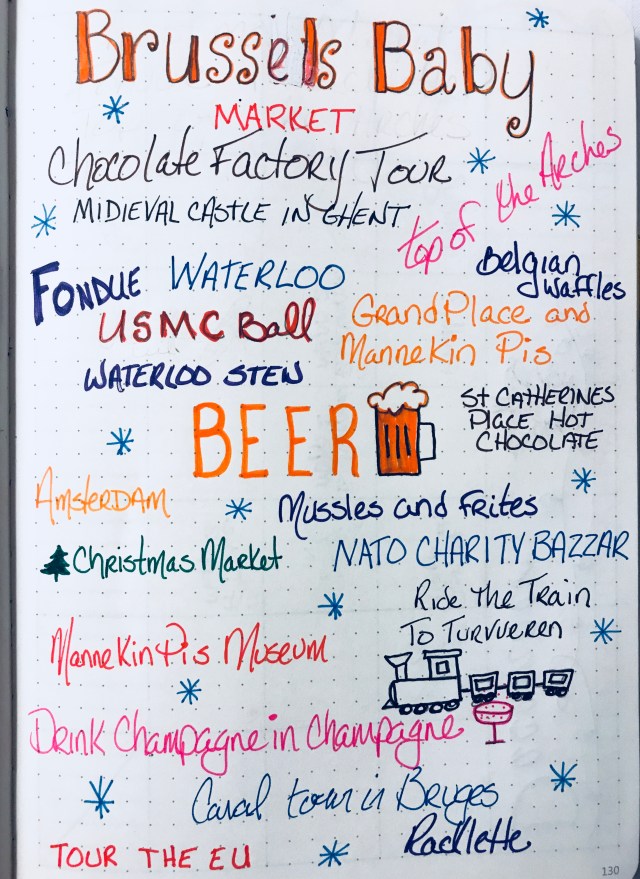 Brussels Baby
MARKET
Chocolate Factory Tour
MIDIEVAL CASTLE IN GHENT
top of the Arches
FONDUE
WATERLOO
Belgian
Waffles
USMC Ball
Grand Place and
Mannekin Pis
WATERLOO STEW
BEER
St CATHERINES
PLACE HOT
CHOCOLATE
AmsterDAM
Mussles and Frites
Christmas Market
NATO CHARITY BAZZAR
Ride the Train
To Turvueren
Mannekin Pis Museum
Drink Champagne in Champagne
Canal tour in Bruges
Racllette
TOUR THE EU
130